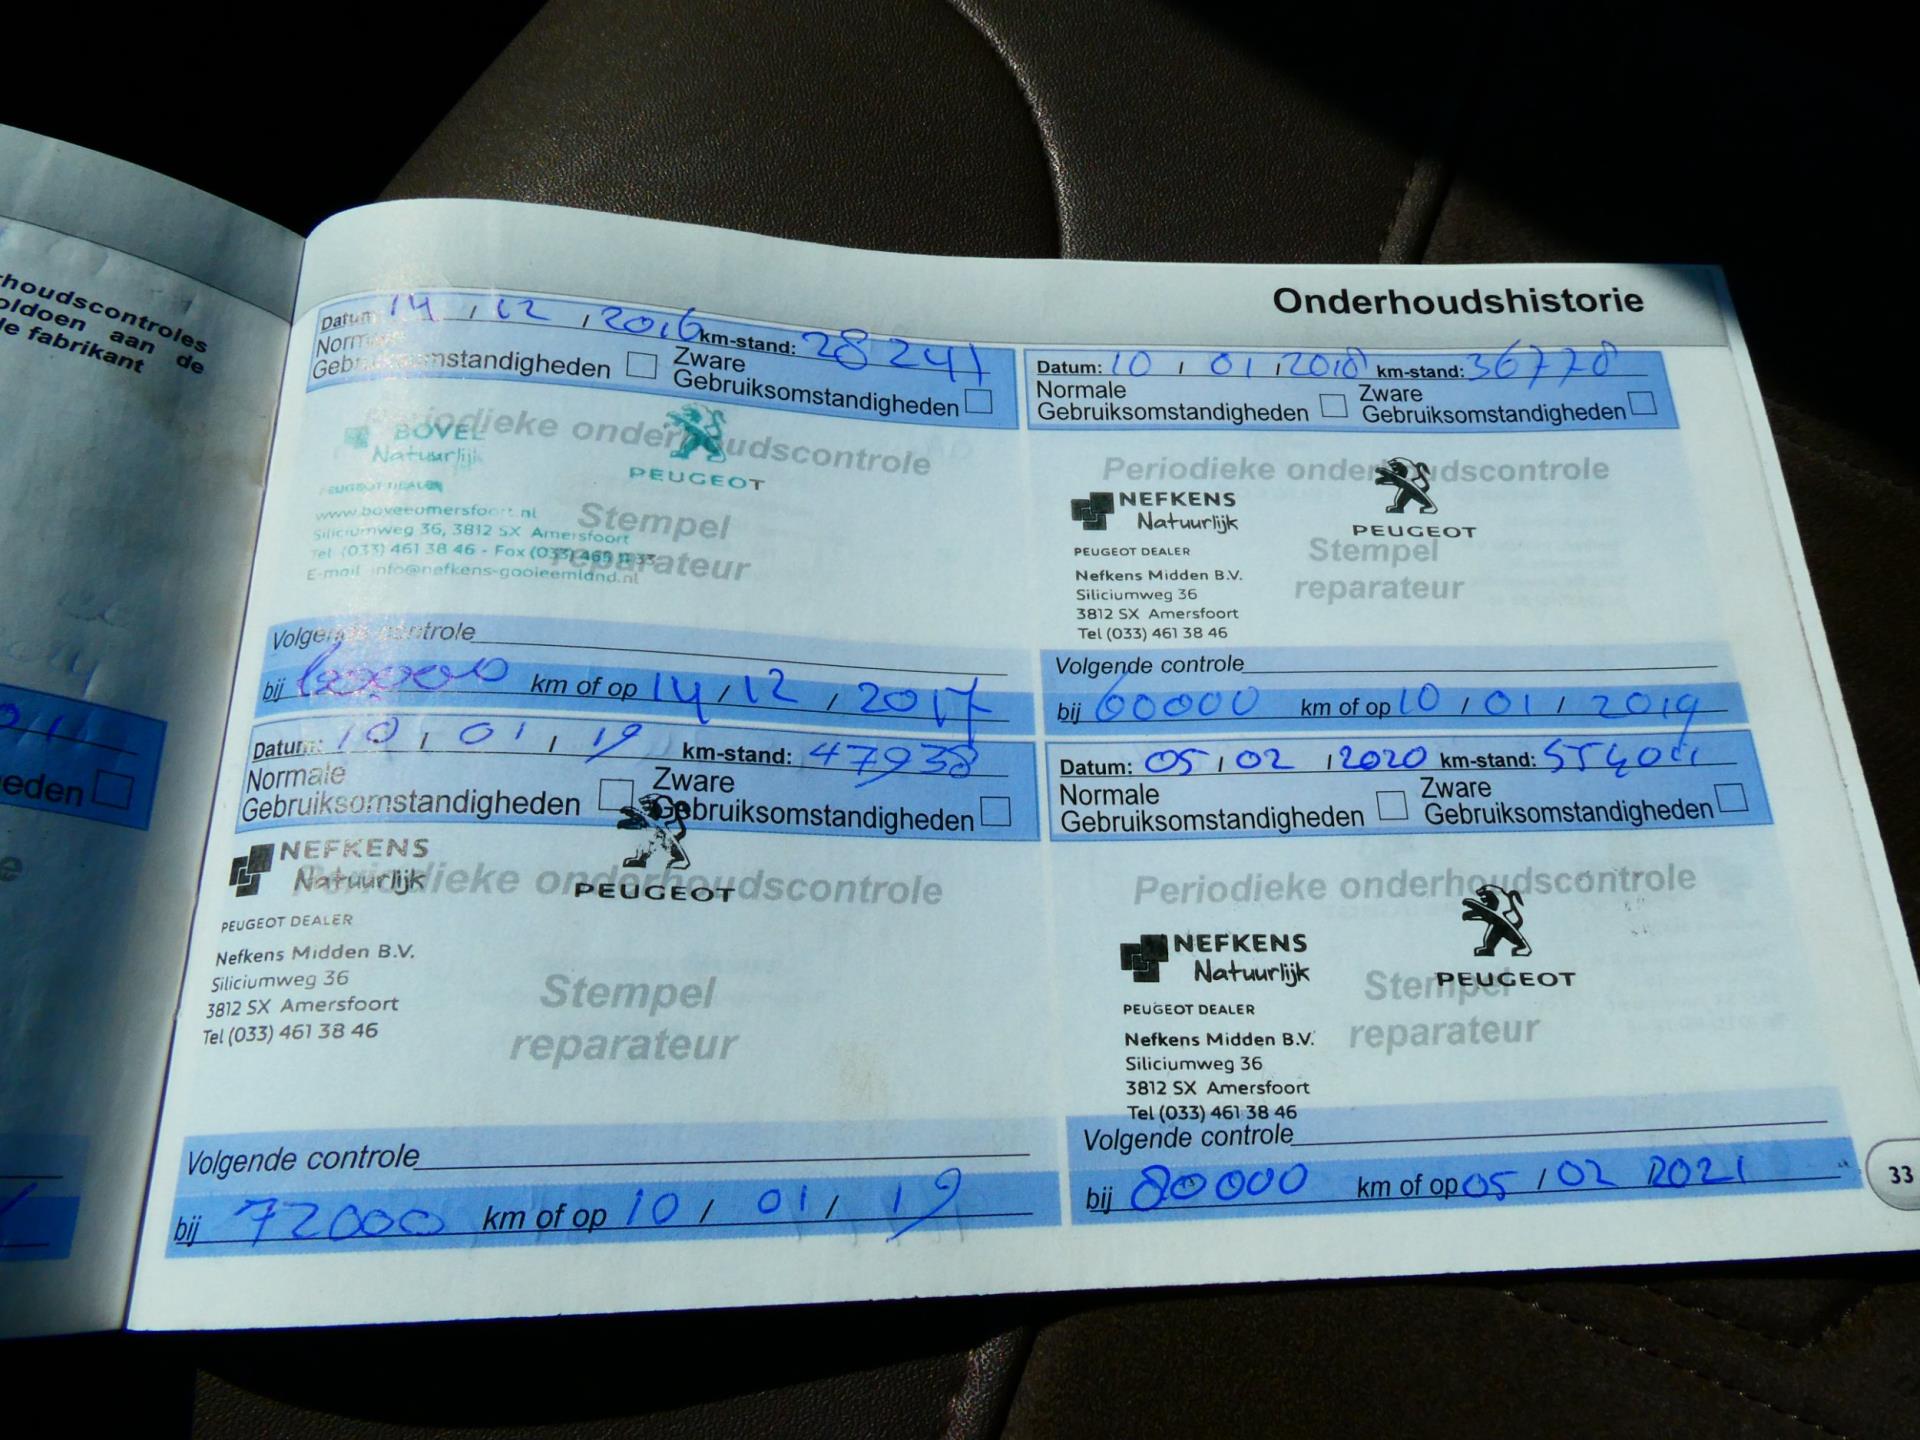 houdscontroles
oldoen aan de
le fabrikant
eden
Onderhoudshistorie
Datum: 14 / 12 / 2016 km-stand: 28241
Normale
Gebruiksomstandigheden
Zware
Gebruiksomstandigheden
Periodieke onderhoudscontrole
BOVEE
Natuurlijk
PEUGEOT
PEUGEOT DEALER
Stempel
reparateur
Siliciumweg 36, 3812 SX Amersfoort
Tel (033) 461 38 46 - Fax (033)
E-mail info@nefkens-gooieemland.nl
Volgende controle
bij km of op 14 / 12 / 2017
Datum: 10 / 01 / 2018 km-stand: 36778
Normale
Gebruiksomstandigheden
Zware
Gebruiksomstandigheden
Periodieke onderhoudscontrole
NEFKENS
Natuurlijk
PEUGEOT
PEUGEOT DEALER
Stempel
reparateur
Nefkens Midden B.V.
Siliciumweg 36
3812 SX Amersfoort
Tel (033) 461 38 46
Volgende controle
bij 60000 km of op 10 / 01 / 2019
Datum: 10 / 01 / 19 km-stand: 47938
Normale
Gebruiksomstandigheden
Zware
Gebruiksomstandigheden
NEFKENS
Natuurlijk
Periodieke onderhoudscontrole
PEUGEOT
PEUGEOT DEALER
Nefkens Midden B.V.
Siliciumweg 36
3812 SX Amersfoort
Tel (033) 461 38 46
Stempel
reparateur
Volgende controle
bij 72000 km of op 10 / 01 / 19
Datum: 05 / 02 / 2020 km-stand:
Normale
Gebruiksomstandigheden
Zware
Gebruiksomstandigheden
Periodieke onderhoudscontrole
NEFKENS
Natuurlijk
PEUGEOT
PEUGEOT DEALER
Stempel
reparateur
Nefkens Midden B.V.
Siliciumweg 36
3812 SX Amersfoort
Tel (033) 461 38 46
Volgende controle
bij 80000 km of op 05 / 02 2021
33